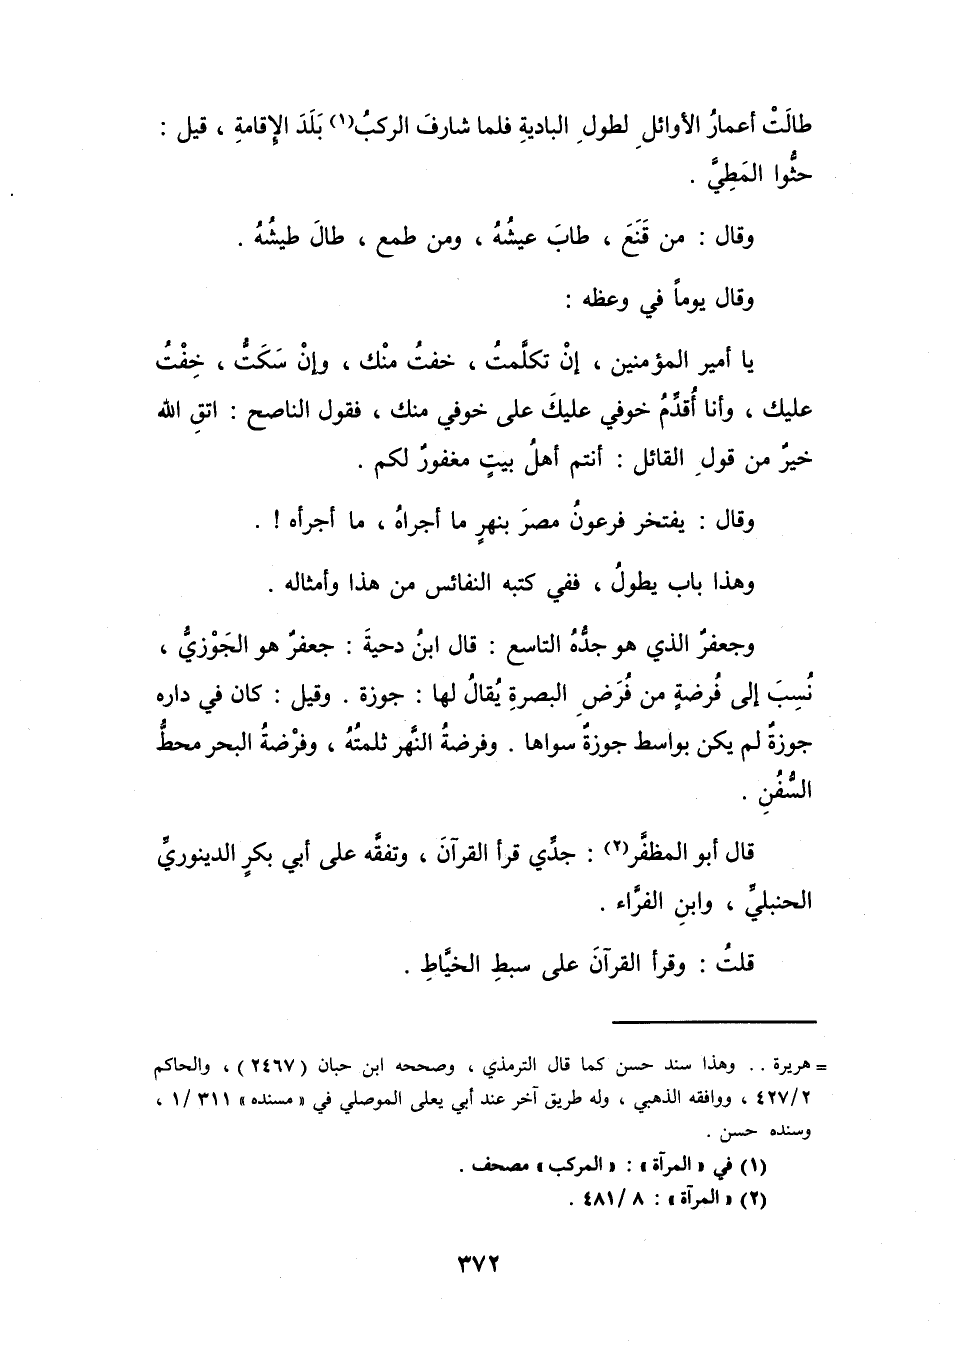 طالَتْ أعمارُ الأوائلِ لطولِ الباديةِ فلما شارفَ الركبُ(١) بَلَدَ الإقامةِ ، قيل :
حثُّوا المَطِيَّ .
وقال : من قَنَعَ ، طابَ عيشُهُ ، ومن طمع ، طالَ طيشُهُ .
وقال يوماً في وعظه :
يا أمير المؤمنين ، إنْ تكلَّمتُ ، خفتُ منْك ، وإنْ سَكَتُّ ، خِفْتُ
عليك ، وأنا أُقدِّمُ خوفي عليكَ على خوفي منك ، فقول الناصح : اتقِ الله
خيرٌ من قولِ القائل : أنتم أهلُ بيتٍ مغفورٌ لكم .
وقال : يفتخر فرعونُ مصرَ بنهرٍ ما أجراهُ ، ما أجرأه ! .
وهذا باب يطولُ ، ففي كتبه النفائس من هذا وأمثاله .
وجعفرٌ الذي هو جدُّهُ التاسع : قال ابنُ دحيةَ : جعفرٌ هو الجَوْزيُّ ،
نُسِبَ إلى فُرضةٍ من فُرَضِ البصرةِ يُقالُ لها : جوزة . وقيل : كان في داره
جوزةٌ لم يكن بواسط جوزةٌ سواها . وفرضةُ النَّهر ثلمتُهُ ، وفرْضةُ البحر محطُّ
السُّفُنِ .
قال أبو المظفَّر(٢) : جدِّي قرأ القرآنَ ، وتفقَّه على أبي بكرٍ الدينوريِّ
الحنبليِّ ، وابنِ الفرَّاء .
قلتُ : وقرأ القرآنَ على سبطِ الخيَّاطِ .
= هريرة . . وهذا سند حسن كما قال الترمذي ، وصححه ابن حبان ( ٢٤٦٧ ) ، والحاكم
٤٢٧/٢ ، ووافقه الذهبي ، وله طريق آخر عند أبي يعلى الموصلي في « مسنده » ٣١١ /١ ،
وسنده حسن .
(١) في « المرآة » : « المركب » مصحف .
(٢) « المرآة » : ٨ /٤٨١ .
٣٧٢